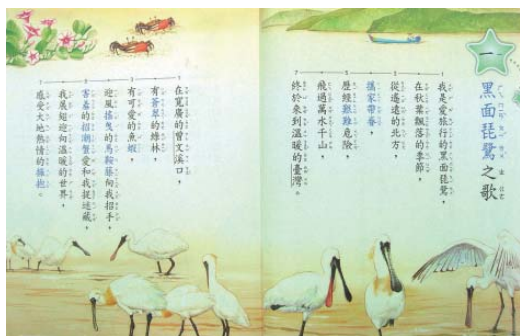 一
黑面琵鷺之歌
我是愛旅行的黑面琵鷺，
在秋葉飄落的季節，
從遙遠的北方，
攜家帶眷，
歷經艱難危險，
飛過萬水千山，
終於來到溫暖的臺灣。
在寬廣的曾文溪口，
有蒼翠的綠林，
有可愛的魚蝦，
迎風搖曳的馬鞍藤向我招手，
害羞的招潮蟹愛和我捉迷藏，
我展翅迎向溫暖的世界，
感受大地熱情的擁抱。